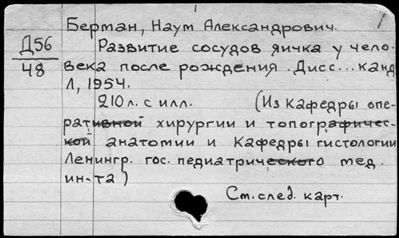 Берман, Наум Александрович.
Д56
48
Развитие сосудов яичка у чело-
века после рождения. Дисс... канд
Л, 1954.
210 л. с илл. (Из кафедры опе-
ративной хирургии и топографичес-
кой анатомии и кафедры гистологии
Ленингр. гос. педиатрического мед.
ин-та)
См. след. карт.